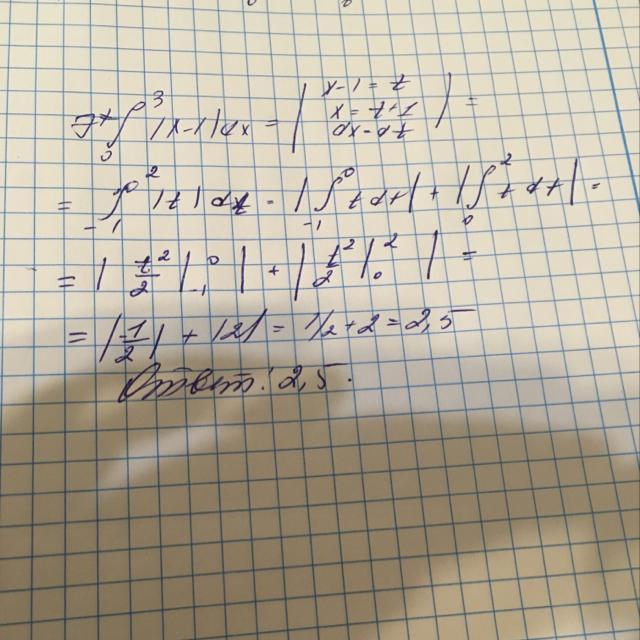 7* ∫₀³ |x-1| dx = | x-1=t x=t+1 dx=dt | =
= ∫₋₁² |t| dt = |∫₋₁⁰ t dt| + |∫₀² t dt| =
= | t²/2 |₋₁⁰ | + | t²/2 |₀² | =
= |1/2| + |2| = 1/2 + 2 = 2,5
Ответ: 2,5.